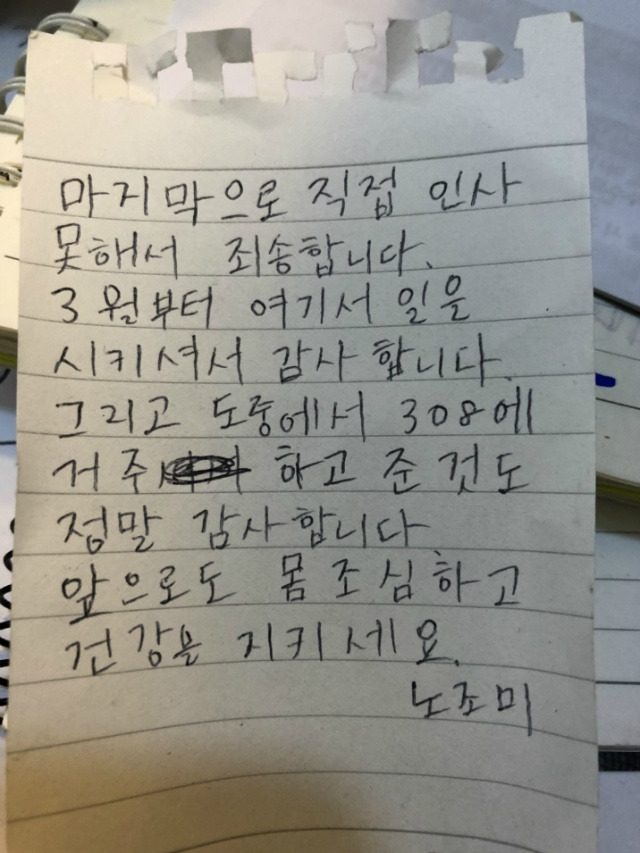 마지막으로 직접 인사
못해서 죄송합니다.
3월부터 여기서 일을
시키셔서 감사합니다.
그리고 도중에서 308에
거주 하고 준 것도
정말 감사합니다
앞으로도 몸조심하고
건강을 지키세요.
노조미